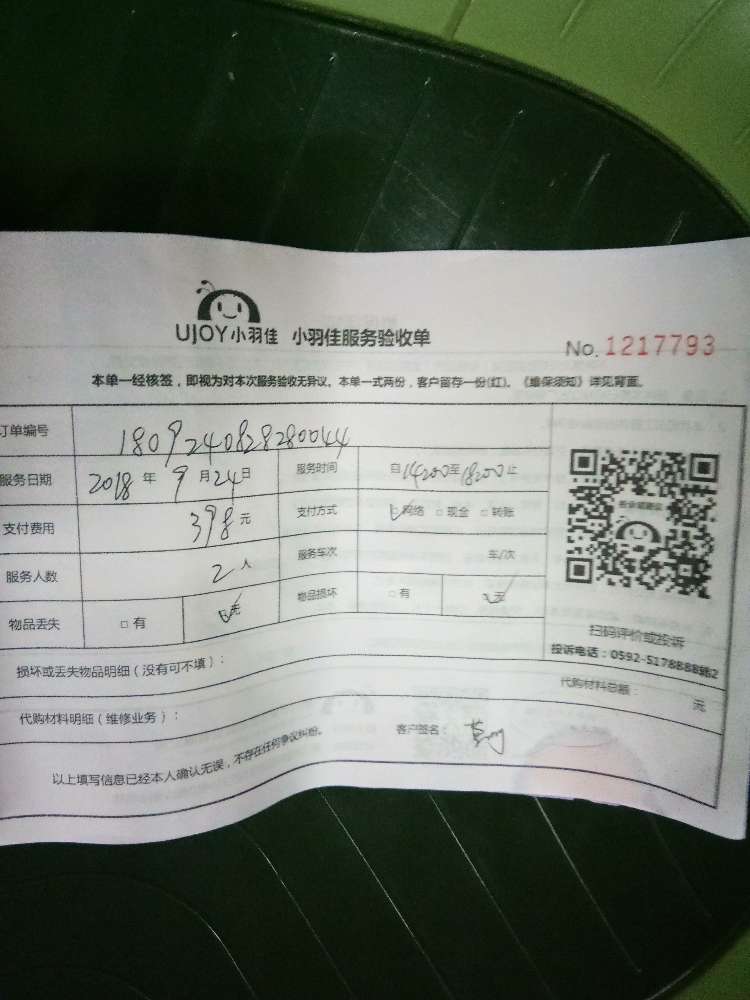 UJOY小羽佳 小羽佳服务验收单
No. 1217793
本单一经核签，即视为对本次服务验收无异议。本单一式两份，客户留存一份(红)。《维保须知》详见背面。
订单编号 1809240828280044
服务日期 2018年9月24日 服务时间 自14:00至18:00止
支付费用 398元 支付方式 ☑网络 □现金 □转账
服务人数 2人 服务车次 车/次
物品丢失 □有 ☑无 物品损坏 □有 ☑无
扫码评价或投诉
投诉电话：0592-5178888转2
损坏或丢失物品明细（没有可不填）：
代购材料总额： 元
代购材料明细（维修业务）：
客户签名：
以上填写信息已经本人确认无误，不存在任何争议纠纷。